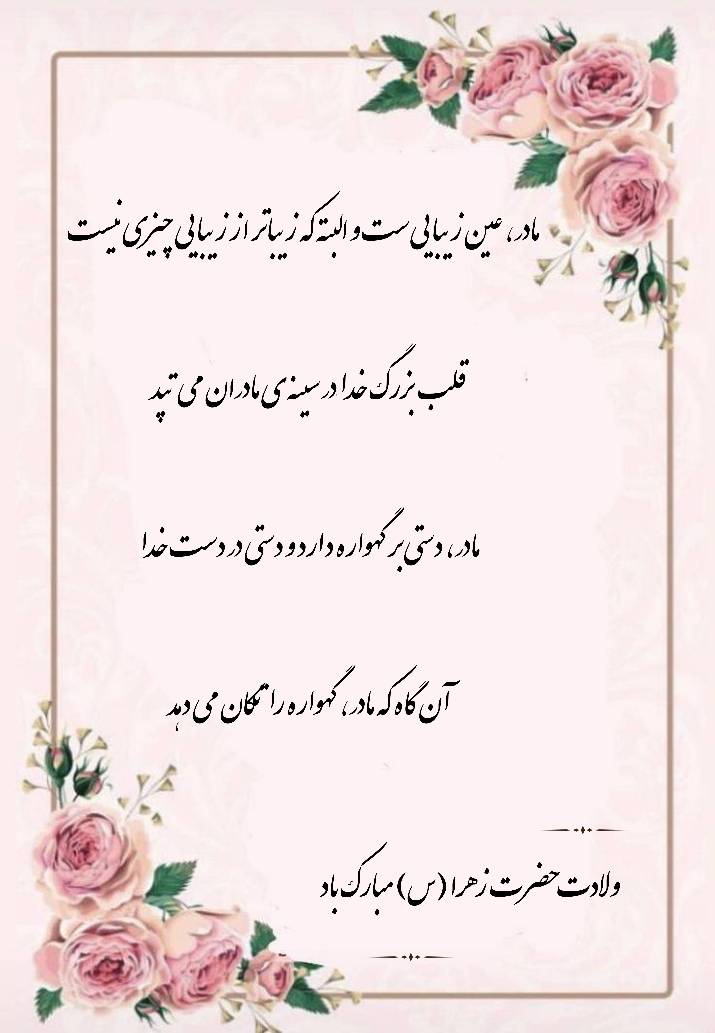 مادر، عین زیبایی ست و البته که زیباتر از زیبایی چیزی نیست
قلب بزرگ خدا در سینه ی مادران می تپد
مادر، دستی بر گهواره دارد و دستی در دست خدا
آن گاه که مادر، گهواره را تکان می دهد
ولادت حضرت زهرا (س) مبارک باد